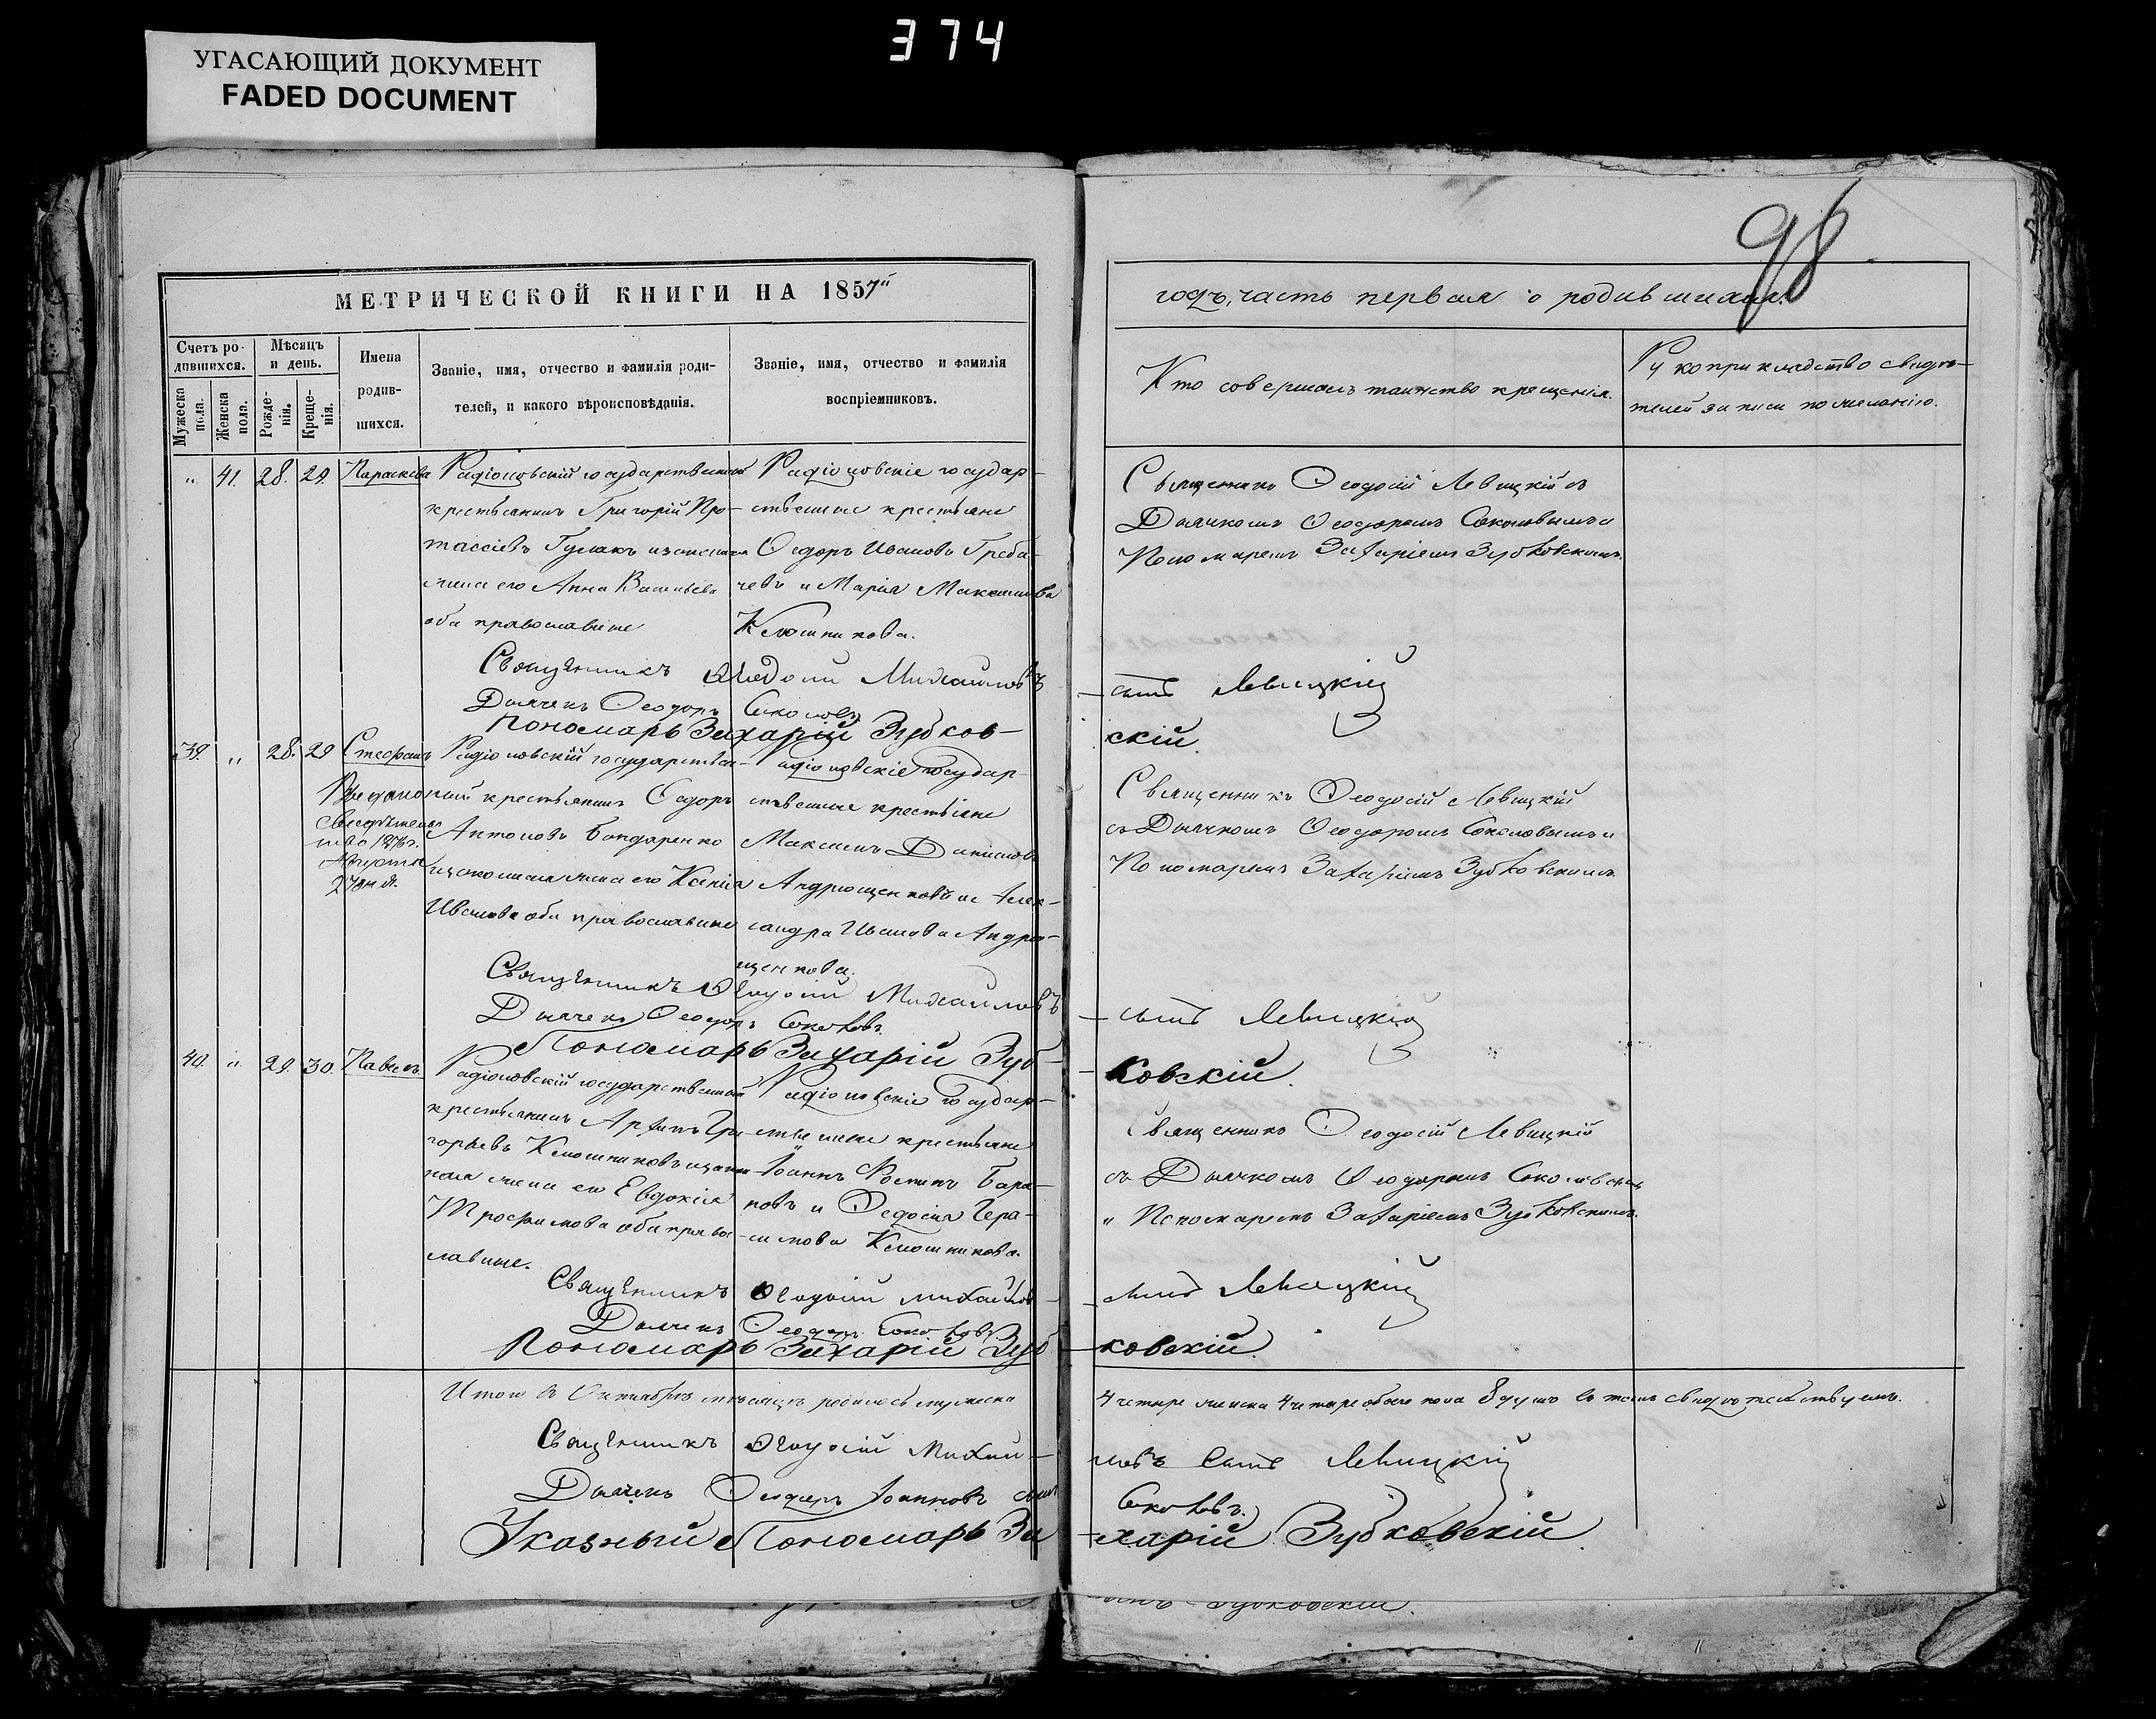 374
УГАСАЮЩИЙ ДОКУМЕНТ
FADED DOCUMENT
98
МЕТРИЧЕСКОЙ КНИГИ НА 1857й
годъ, часть первая о родившихся.
Счетъ родившихся.
Мужеска пола.
Женска пола.
Мѣсяцъ и день.
Рожденія.
Крещенія.
Имена родившихся.
Званіе, имя, отчество и фамилія родителей, и какого вѣроисповѣданія.
Званіе, имя, отчество и фамилія воспріемниковъ.
Кто совершалъ таинство крещенія.
Рукоприкладство свидѣтелей записи по желанію.
„ 41. 28. 29. Параскева
Радіоновскій государственный
крестьянинъ Григорій Про-
тассіевъ Гулакъ и законная
жена его Анна Васильева
оба православные
Радіоновскіе государ-
ственные крестьяне
Ѳедоръ Ивановъ Греба-
чевъ и Марія Максимова
Клюшникова.
Священникъ Ѳеодосій Левицкій съ
Дьячкомъ Ѳеодоромъ Соколовымъ и
Пономаремъ Захаріемъ Зубковскимъ.
Священникъ Ѳеодосій Михаиловъ
сынъ Левицкій
Дьячекъ Ѳеодоръ Соколовъ
Пономарь Захарій Зубков-
скій.
39. „ 28. 29 Стефанъ
Выдано
свидѣтельс
тво 187
Августа
27 дня.
Радіоновскій государствен-
ный крестьянинъ Ѳедоръ
Антоновъ Бондаренко
и законная жена его Ксенія
Иванова оба православные
Радіоновскіе государ-
ственные крестьяне
Максимъ Даниловъ
Андрющенковъ и Алек-
сандра Иванова Андрю-
щенкова.
Священникъ Ѳеодосій Левицкій
съ Дьячкомъ Ѳеодоромъ Соколовымъ и
Пономаремъ Захаріемъ Зубковскимъ
Священникъ Ѳеодосій Михаиловъ
сынъ Левицкій
Дьячекъ Ѳеодоръ Соколовъ.
Пономарь Захарій Зуб-
ковскій.
40. „ 29. 30. Павелъ
Радіоновскій государственный
крестьянинъ Архипъ Гри-
горьевъ Клюшниковъ и закон-
ная жена его Евдокія
Трофимова оба право-
славные.
Радіоновскіе государ-
ственные крестьяне
Іоаннъ Бара-
новъ и Ѳедосія Гера-
симова Клюшникова.
Священникъ Ѳеодосій Левицкій
съ Дьячкомъ Ѳеодоромъ Соколовымъ
и Пономаремъ Захаріемъ Зубковскимъ.
Священникъ Ѳеодосій Михайлов
сынъ Левицкій
Дьячекъ Ѳеодоръ Соколовъ
Пономарь Захарій Зуб
ковскій.
Итого въ Октябрѣ мѣсяцѣ родилось мужеска
4 четыре женска 4 четыре обоего пола 8 душъ въ томъ свидѣтельствуемъ.
Священникъ Ѳеодосій Михаи-
ловъ сынъ Левицкій
Дьячекъ Ѳеодоръ Іоанновъ сынъ
Соколовъ.
Указный Пономарь За
харій Зубковскій.
Зубковскій.